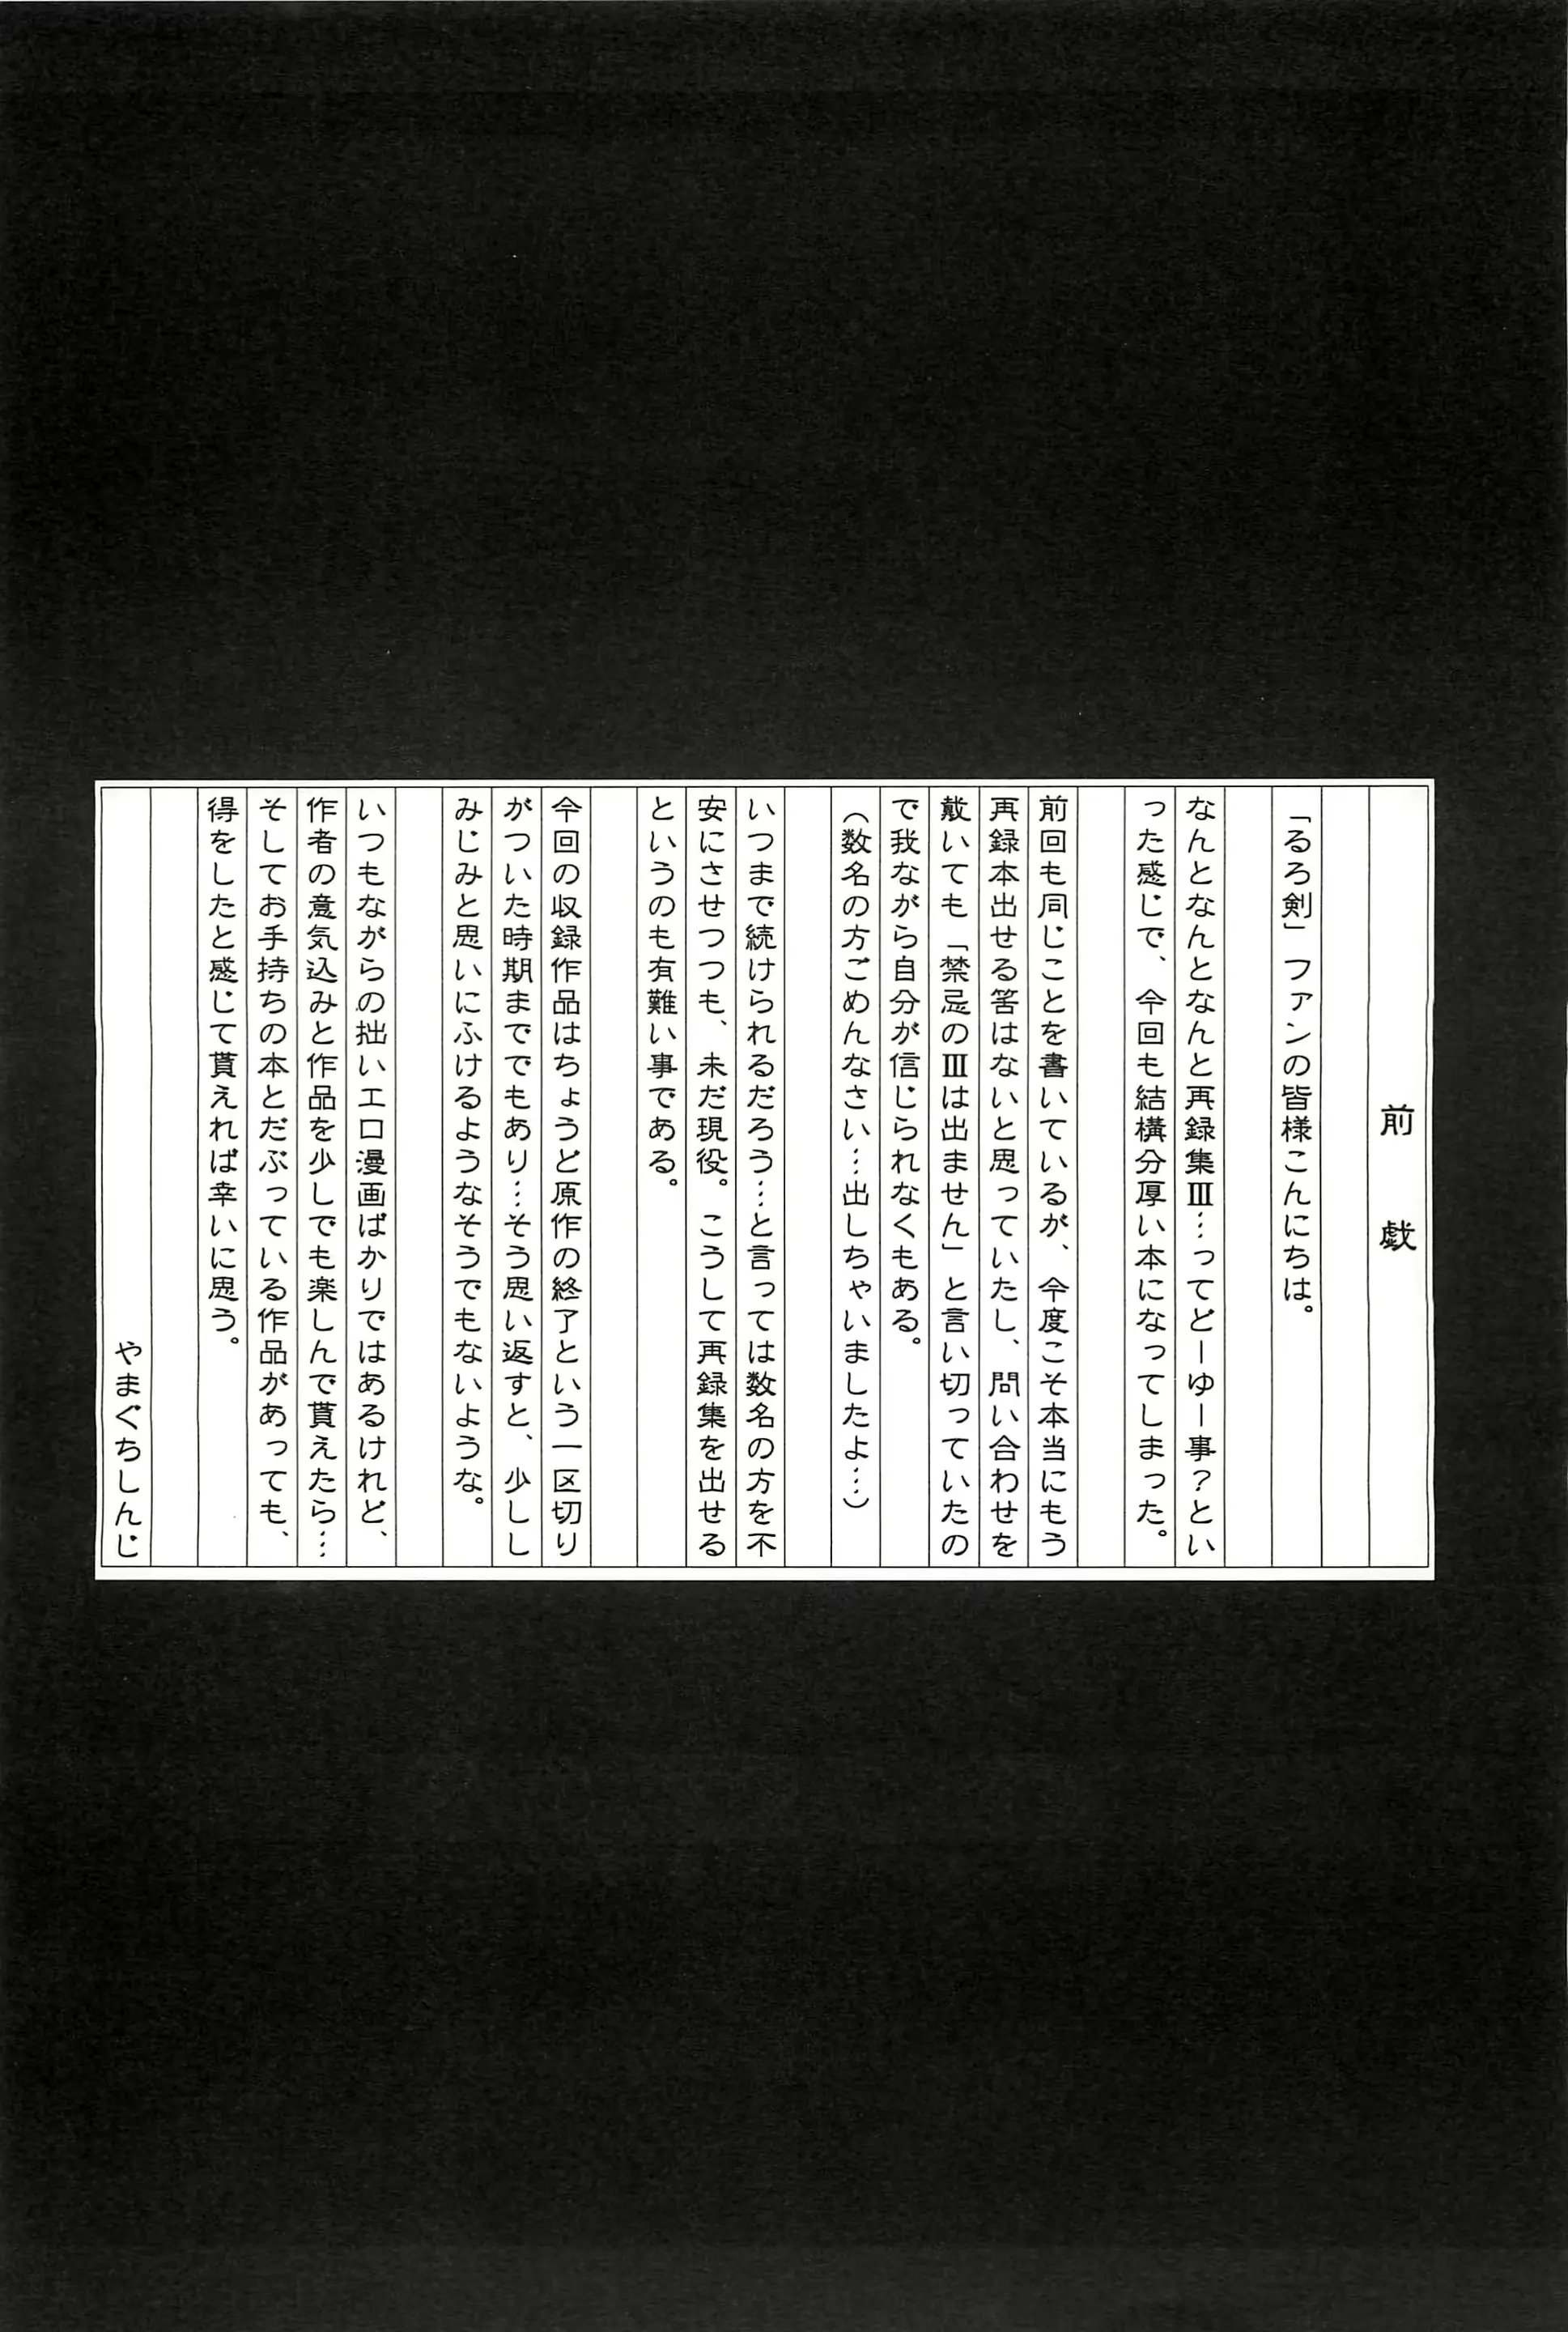 前戯
「るろ剣」ファンの皆様こんにちは。
なんとなんとなんと再録集Ⅲ…ってどーゆー事？とい
った感じで、今回も結構分厚い本になってしまった。
前回も同じことを書いているが、今度こそ本当にもう
再録本出せる筈はないと思っていたし、問い合わせを
戴いても「禁忌のⅢは出ません」と言い切っていたの
で我ながら自分が信じられなくもある。
（数名の方ごめんなさい…出しちゃいましたよ…）
いつまで続けられるだろう…と言っては数名の方を不
安にさせつつも、未だ現役。こうして再録集を出せる
というのも有難い事である。
今回の収録作品はちょうど原作の終了という一区切り
がついた時期まででもあり…そう思い返すと、少しし
みじみと思いにふけるようなそうでもないような。
いつもながらの拙いエロ漫画ばかりではあるけれど、
作者の意気込みと作品を少しでも楽しんで貰えたら…
そしてお手持ちの本とだぶっている作品があっても、
得をしたと感じて貰えれば幸いに思う。
やまぐちしんじ